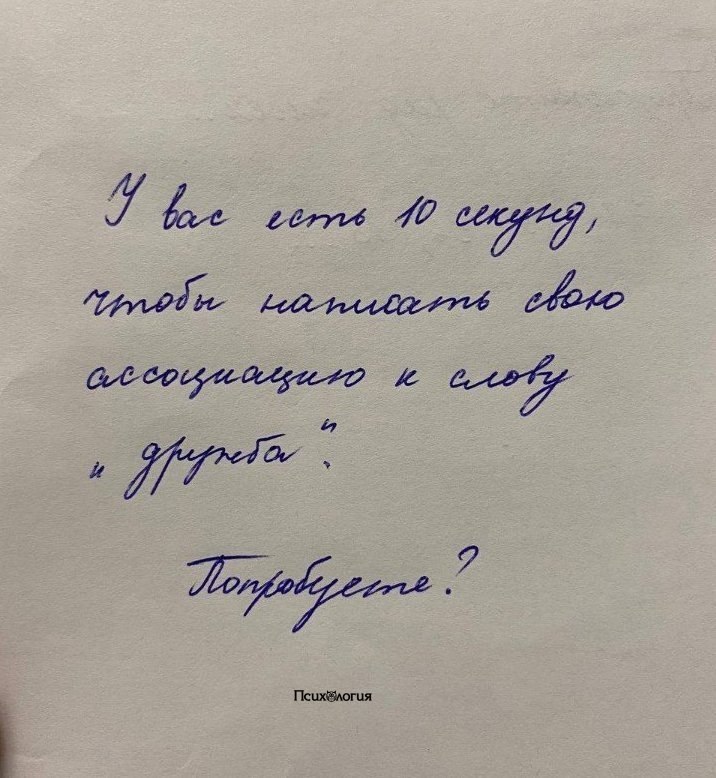 У вас есть 10 секунд,
чтобы написать свою
ассоциацию к слову
"дружба".
Попробуете?
Психология